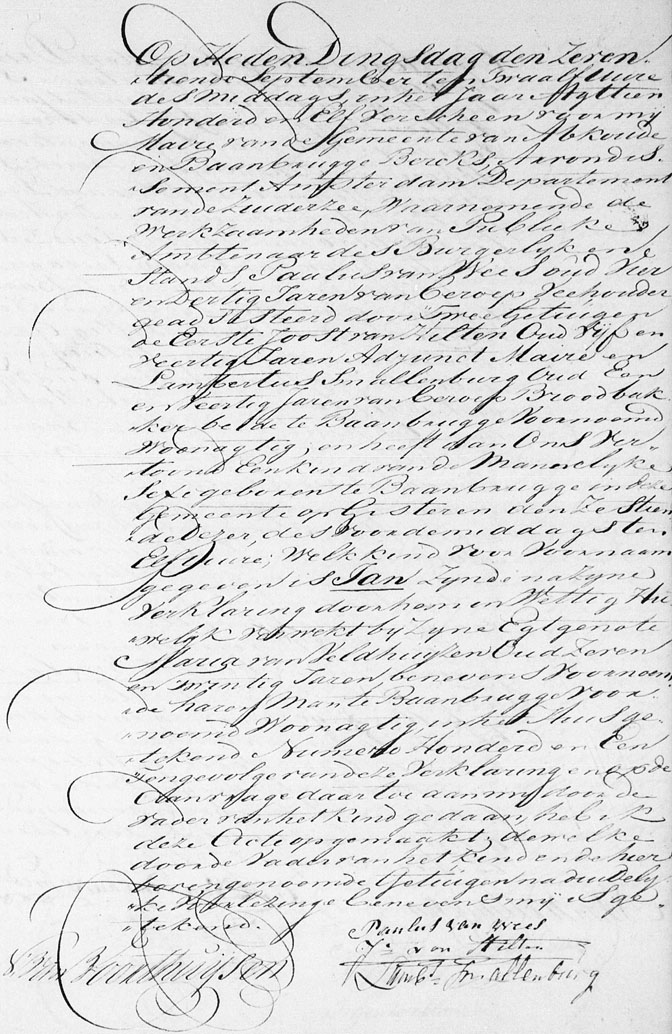 Op Heden Dingsdag den Zeven
tiende September te Twaalf Uure
des Middags, in het Jaar Agttien
Honderd en Elf Verscheen voor mij
Maire van de Gemeente van Abkoude
en Baanbrugge Arrondis
sement Amsterdam Departement
van de Zuiderzee, Waarnemende de
Werkzaamheden van Publieke
Ambtenaar des Burgerlyken
Stands, Paulus van Wees oud Vier
en Dertig Jaren van beroep Veehouder
geadsisteerd door twee Getuigen
de Eerste Joost van Hilten Oud Vijf en
veertig Jaren Adjunct Maire en
Lambertus Smallenburg Oud Een
en Veertig Jaren van beroep Broodbak
ker beide te Baanbrugge Voornoemd
Woonagtig; en heeft aan Ons Ver
toond Een kind van de Mannelyke
Sexe geboren te Baanbrugge in deze
Gemeente op Gisteren den Zestien
de dezer, des voordemiddags ten
Elf Uure; Welk kind voor Voornaam
gegeven is Jan Zynde na Zyne
Verklaring door hem in Wettig Hu
welyk verwekt by Zyne Egtgenote
Maria van Veldhuyzen Oud Zeven
en Twintig Jaren benevens Voornoem
de haren Man te Baanbrugge voor
noemd Woonagtig in het Huis ge
tekend Numero Honderd en Een
zengevolge van deze Verklaring en op de
Aanvrage daartoe aan my door de
vader van het kind gedaan, heb ik
deze Acte opgemaakt; dewelke
door de Vader van het kind en de hier
boven genoemde Getuigen na duidely
ke Voorlezinge benevens mij is ge
tekend.
Paulus van Wees
Jt van Hilten
Lambt Smallenburg